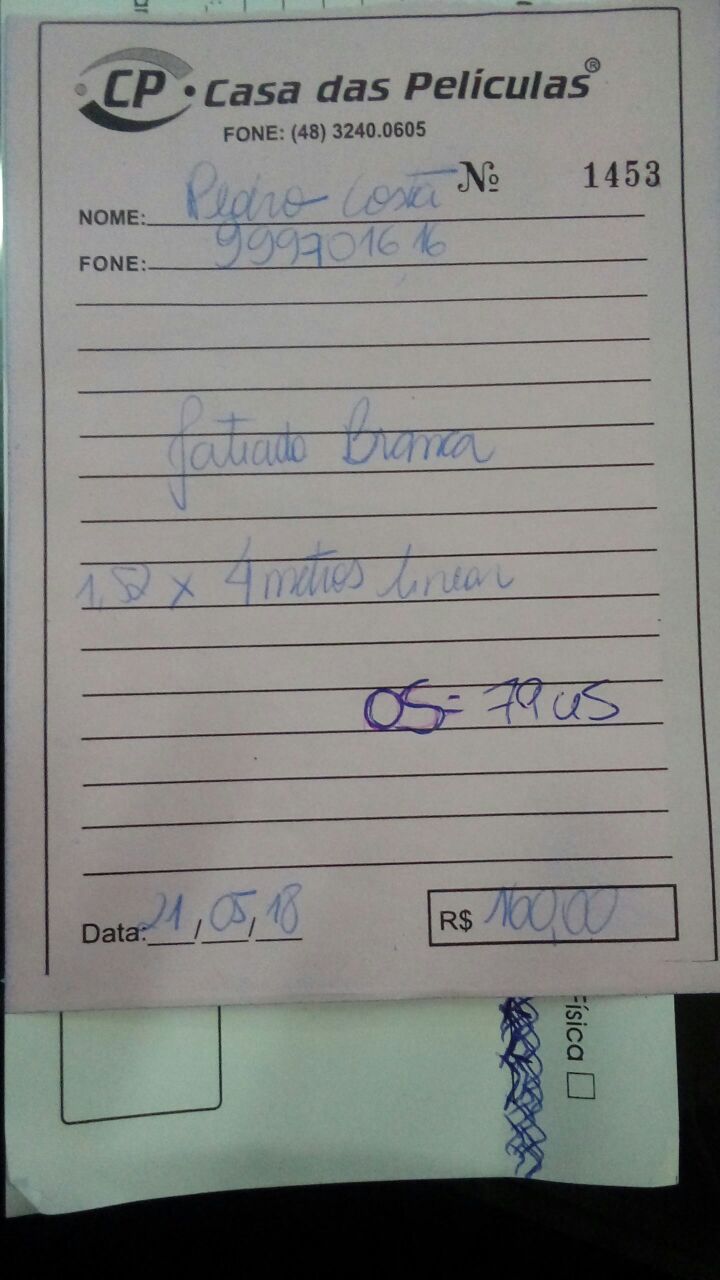 CP • Casa das Películas®
FONE: (48) 3240.0605
Nº 1453
NOME: Pedro Costa
FONE: 999701616
Jateado Branca
1,52 x 4 metros linear
OS=
Data: 21/05/18
R$ 160,00
Física